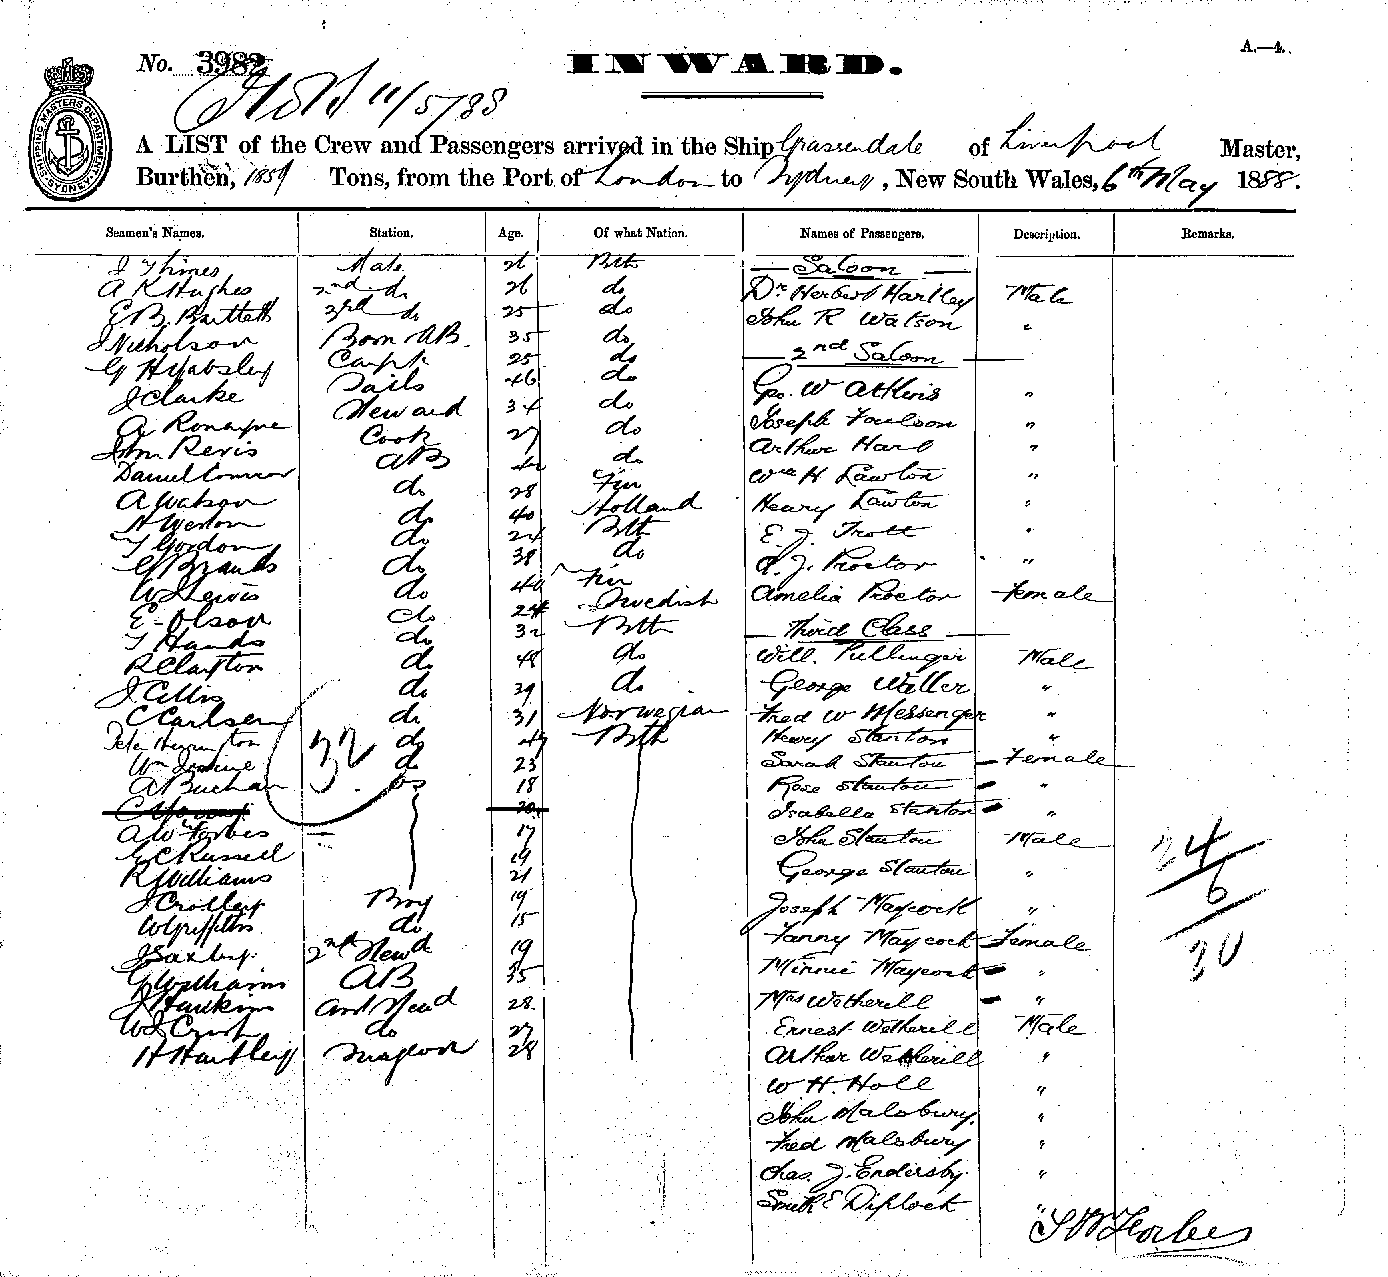 A.—4.
No. 3982
INWARD.
11/5/88
SHIPPING MASTERS DEPARTMENT SYDNEY
A LIST of the Crew and Passengers arrived in the Ship Grassendale of Liverpool Master,
Burthen, 1859 Tons, from the Port of London to Sydney, New South Wales, 6th May 1888.
Seamen's Names. Station. Age. Of what Nation. Names of Passengers. Description. Remarks.
Mate 26 Brth — Saloon —
A K Hughes 2nd do 26 do Dr Herbert Hartley Male
E B. Bartlett 3rd do 25 do John R Watson "
J Nicholson Bosn AB. 35 do — 2nd Saloon —
Carptr 25 do
Sails 46 do Geo. W Atkins "
J Clarke Steward 34 do Joseph Foulson "
A Ronayne Cook 27 do Arthur Hard "
Revis AB do Wm H Lawton "
Daniel Connor do 28 Fin Henry Lawton "
A Watson do 40 Holland E. J. Trott "
H Weston do 24 Brth A. J. Proctor "
T Gordon do 38 do Amelia Proctor Female
G Brands do 40 Fin — Third Class —
W Lewis do 24 Swedish Will. Pullinger Male
E Olson do 32 Brth George Waller "
T Hands do 48 do Fred W Messenger "
R Clayton do 39 do Henry Stanton "
J Ellis do 31 Norwegian Sarah Stanton Female
C Carlsen do Brth Rose Stanton "
Peter Herrington do 23 Isabella Stanton "
Wm do 18 John Stanton Male
A Buchan OS 20 George Stanton "
A W Forbes 17 Joseph Maycock "
G C Russell 19 Fanny Maycock Female
R Williams 21 Minnie Maycock "
J Crolley Boy 19 Mrs Wetherill "
W Griffiths do 15 Ernest Wetherill Male
J Saxby 2nd Stewd 19 Arthur Wetherill "
G Williams AB 35 W. H. Holl "
J Hawkins and Stewd 28 John Malsbury "
do 27 Fred Malsbury "
H Hartley Surgeon 28 Chas. J. Endersby "
Smith E Diplock "
32
24
6
30
Forbes